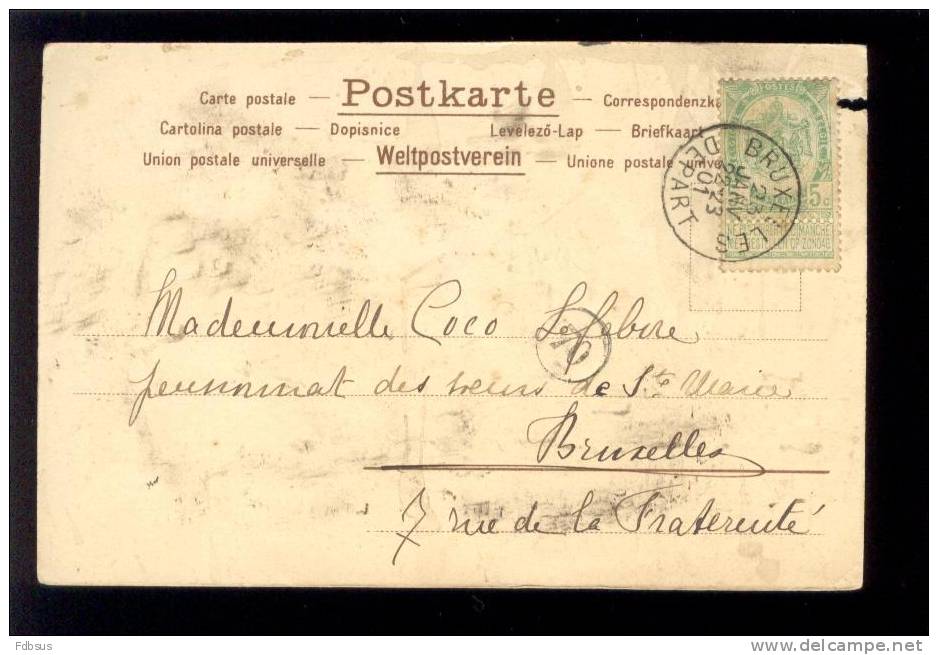 Carte postale — Postkarte — Correspondenzka
Cartolina postale — Dopisnice Levelező-Lap — Briefkaart
Union postale universelle — Weltpostverein — Unione postale unive
POSTES
5c
BRUXELLES
23
JANV
23
01
DEPART
Mademoiselle Coco Lefebvre
pensionnat des soeurs de Ste Marie
Bruxelles
7 rue de la Fraternité
Fdbsus
www.delcampe.net